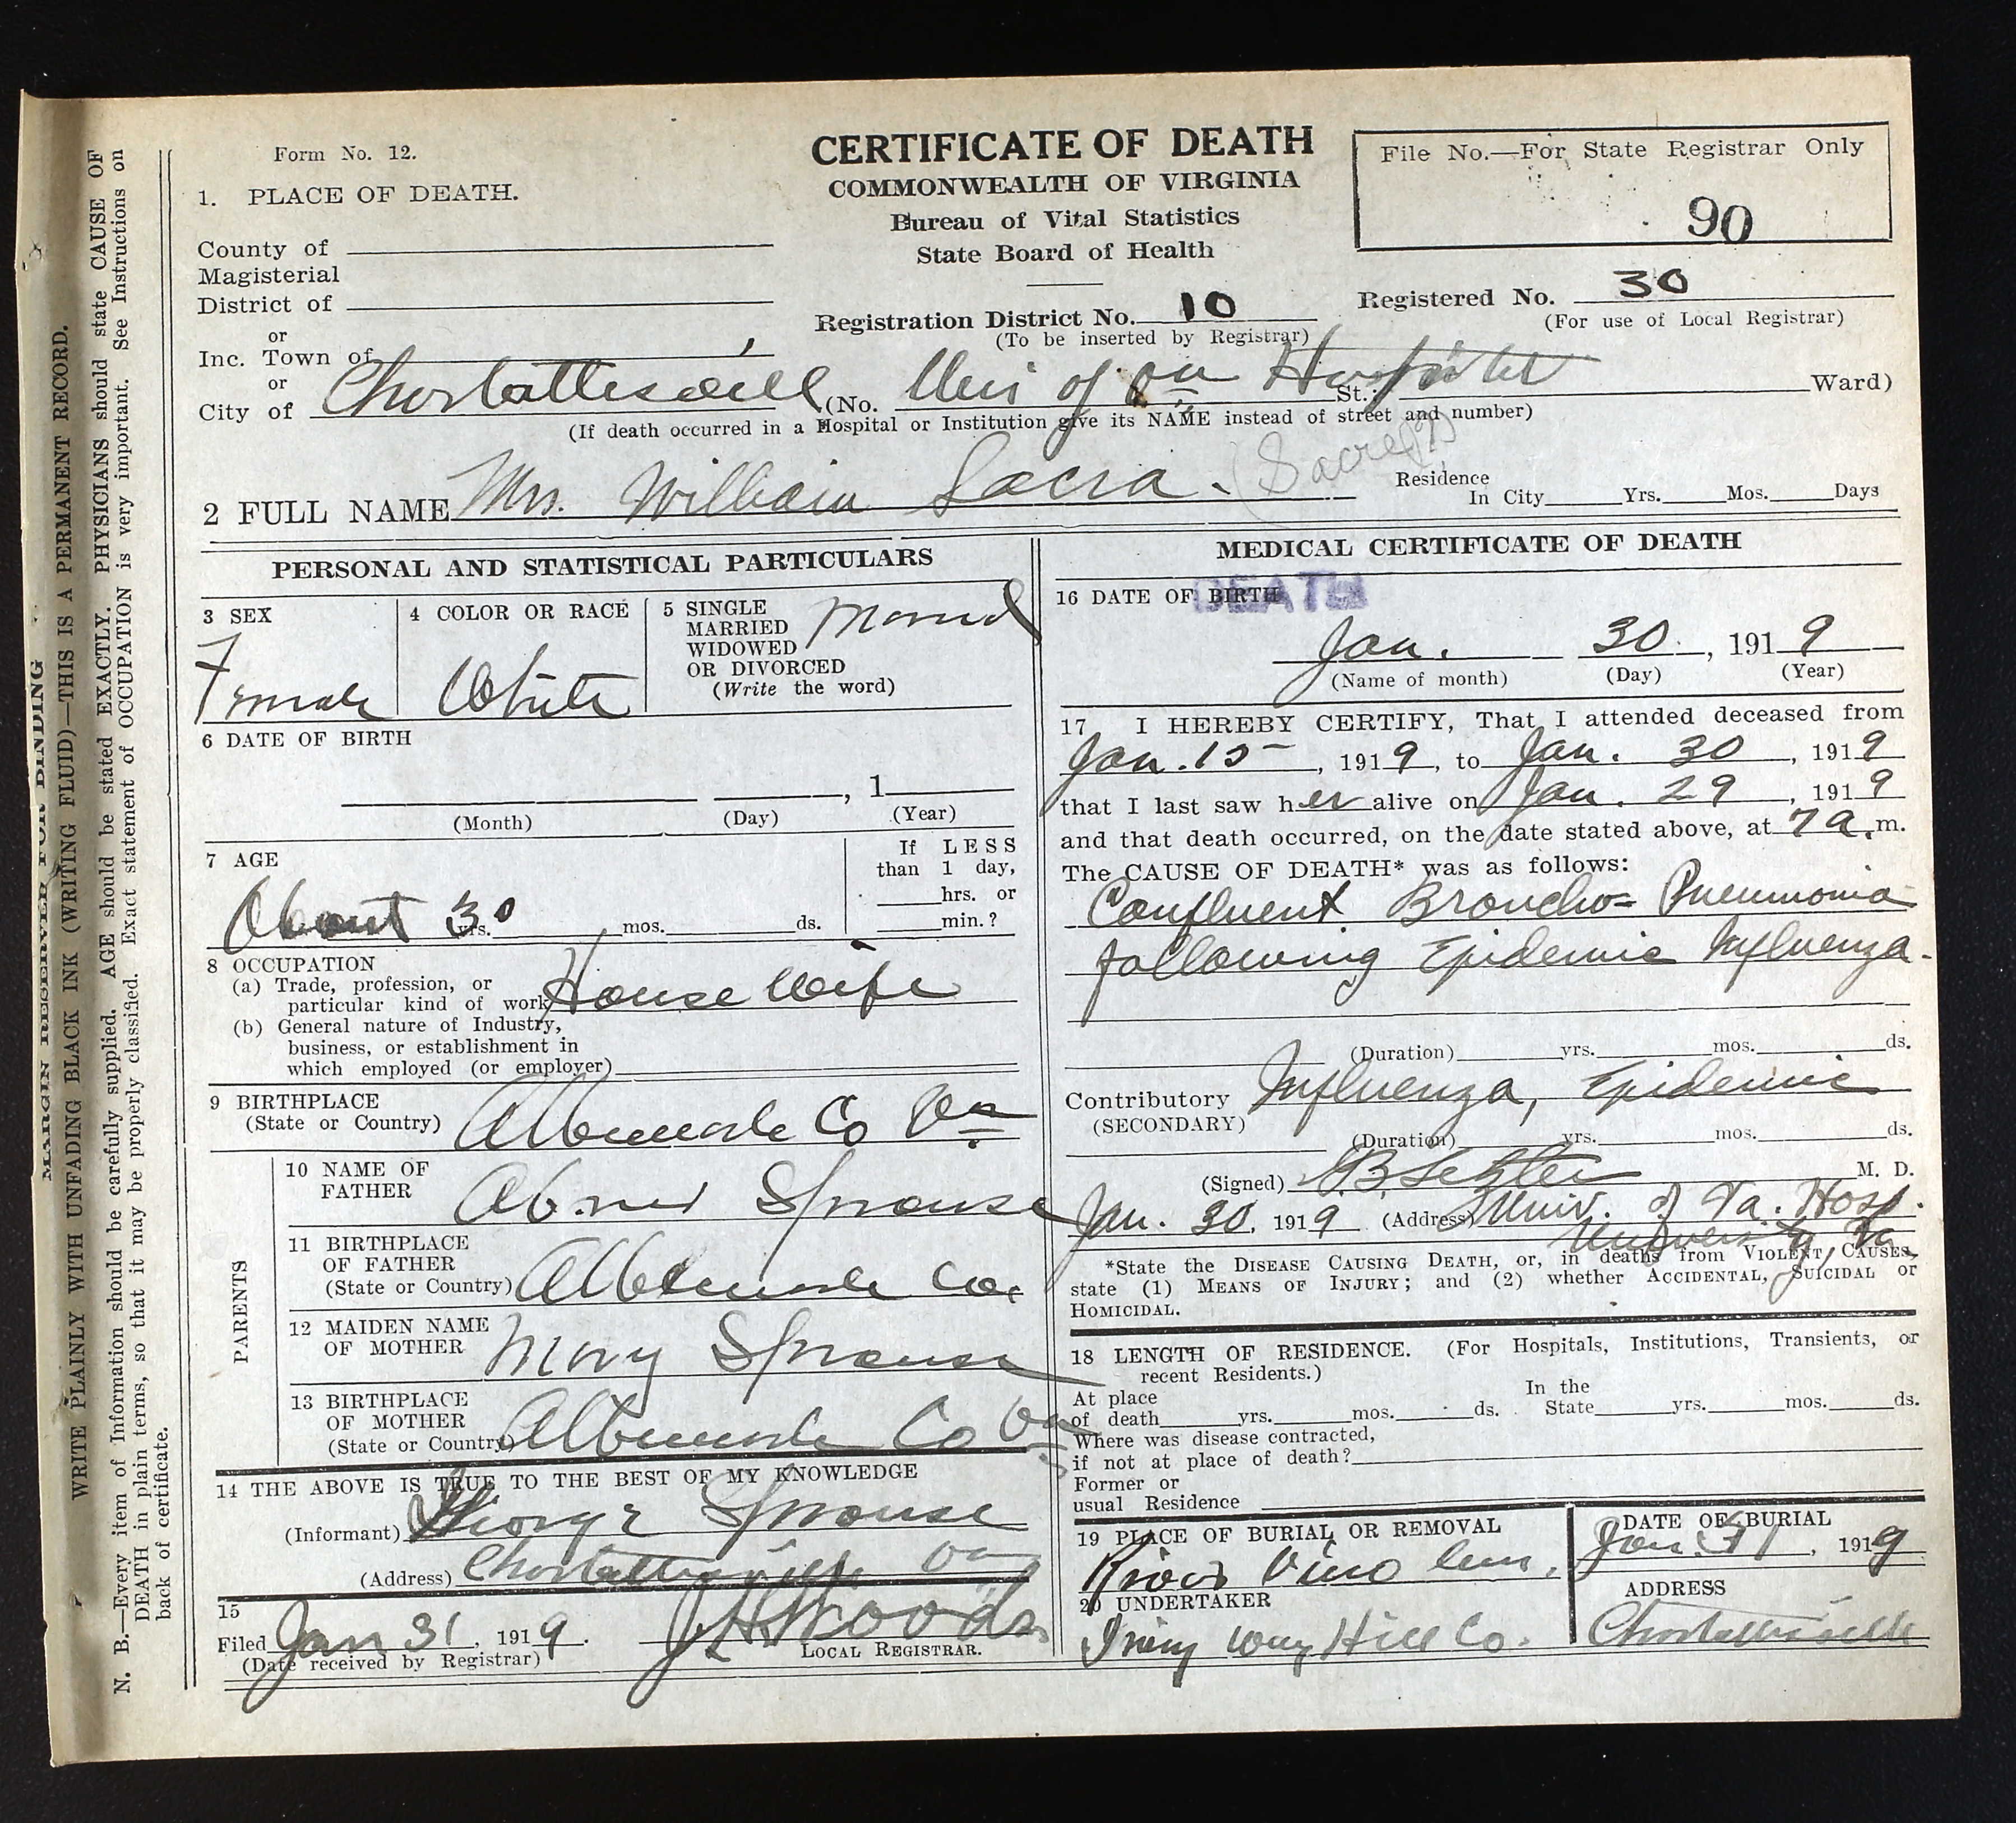 Form No. 12.
CERTIFICATE OF DEATH
COMMONWEALTH OF VIRGINIA
Bureau of Vital Statistics
State Board of Health
File No.—For State Registrar Only
90
1. PLACE OF DEATH.
County of
Magisterial
District of
or
Inc. Town of
or
Registration District No. 10
(To be inserted by Registrar)
Registered No. 30
(For use of Local Registrar)
City of Charlottesville (No. Uni of Va Hospital St.; Ward)
(If death occurred in a Hospital or Institution give its NAME instead of street and number)
(Sacre(?))
2 FULL NAME Mrs. William Sacra.
Residence
In City Yrs. Mos. Days
PERSONAL AND STATISTICAL PARTICULARS
3 SEX
Female
4 COLOR OR RACE
White
5 SINGLE
MARRIED
WIDOWED
OR DIVORCED
(Write the word)
Married
6 DATE OF BIRTH
, 1
(Month) (Day) (Year)
7 AGE
About 30 yrs. mos. ds.
If LESS
than 1 day,
hrs. or
min.?
8 OCCUPATION
(a) Trade, profession, or
particular kind of work House Wife
(b) General nature of Industry,
business, or establishment in
which employed (or employer)
9 BIRTHPLACE
(State or Country) Albemarle Co Va
PARENTS
10 NAME OF
FATHER Abner Sprouse
11 BIRTHPLACE
OF FATHER
(State or Country) Albemarle Co.
12 MAIDEN NAME
OF MOTHER Mary Sprouse
13 BIRTHPLACE
OF MOTHER
(State or Country) Albemarle Co Va
14 THE ABOVE IS TRUE TO THE BEST OF MY KNOWLEDGE
(Informant) George Sprouse
(Address) Charlottesville Va
15
Filed Jan 31, 1919.
(Date received by Registrar)
J H Woods
LOCAL REGISTRAR.
MEDICAL CERTIFICATE OF DEATH
16 DATE OF BIRTH DEATH
Jan. 30, 1919
(Name of month) (Day) (Year)
17 I HEREBY CERTIFY, That I attended deceased from
Jan. 15, 1919, to Jan. 30, 1919
that I last saw her alive on Jan. 29, 1919
and that death occurred, on the date stated above, at 7 a.m.
The CAUSE OF DEATH* was as follows:
Confluent Broncho=Pneumonia
following Epidemic Influenza.
(Duration) yrs. mos. ds.
Contributory Influenza, Epidemic
(SECONDARY)
(Duration) yrs. mos. ds.
(Signed) M. D.
Jan. 30, 1919 (Address) Univ. of Va. Hosp.
University, Va.
*State the DISEASE CAUSING DEATH, or, in deaths from VIOLENT CAUSES,
state (1) MEANS OF INJURY; and (2) whether ACCIDENTAL, SUICIDAL or
HOMICIDAL.
18 LENGTH OF RESIDENCE. (For Hospitals, Institutions, Transients, or
recent Residents.)
At place
of death yrs. mos. ds.
In the
State yrs. mos. ds.
Where was disease contracted,
if not at place of death?
Former or
usual Residence
19 PLACE OF BURIAL OR REMOVAL
River View Cem.
DATE OF BURIAL
Jan. 31, 1919
20 UNDERTAKER
Irving Way Hill Co.
ADDRESS
Charlottesville
MARGIN RESERVED FOR BINDING
WRITE PLAINLY WITH UNFADING BLACK INK (WRITING FLUID)—THIS IS A PERMANENT RECORD.
N. B.—Every item of Information should be carefully supplied. AGE should be stated EXACTLY. PHYSICIANS should state CAUSE OF
DEATH in plain terms, so that it may be properly classified. Exact statement of OCCUPATION is very important. See Instructions on
back of certificate.